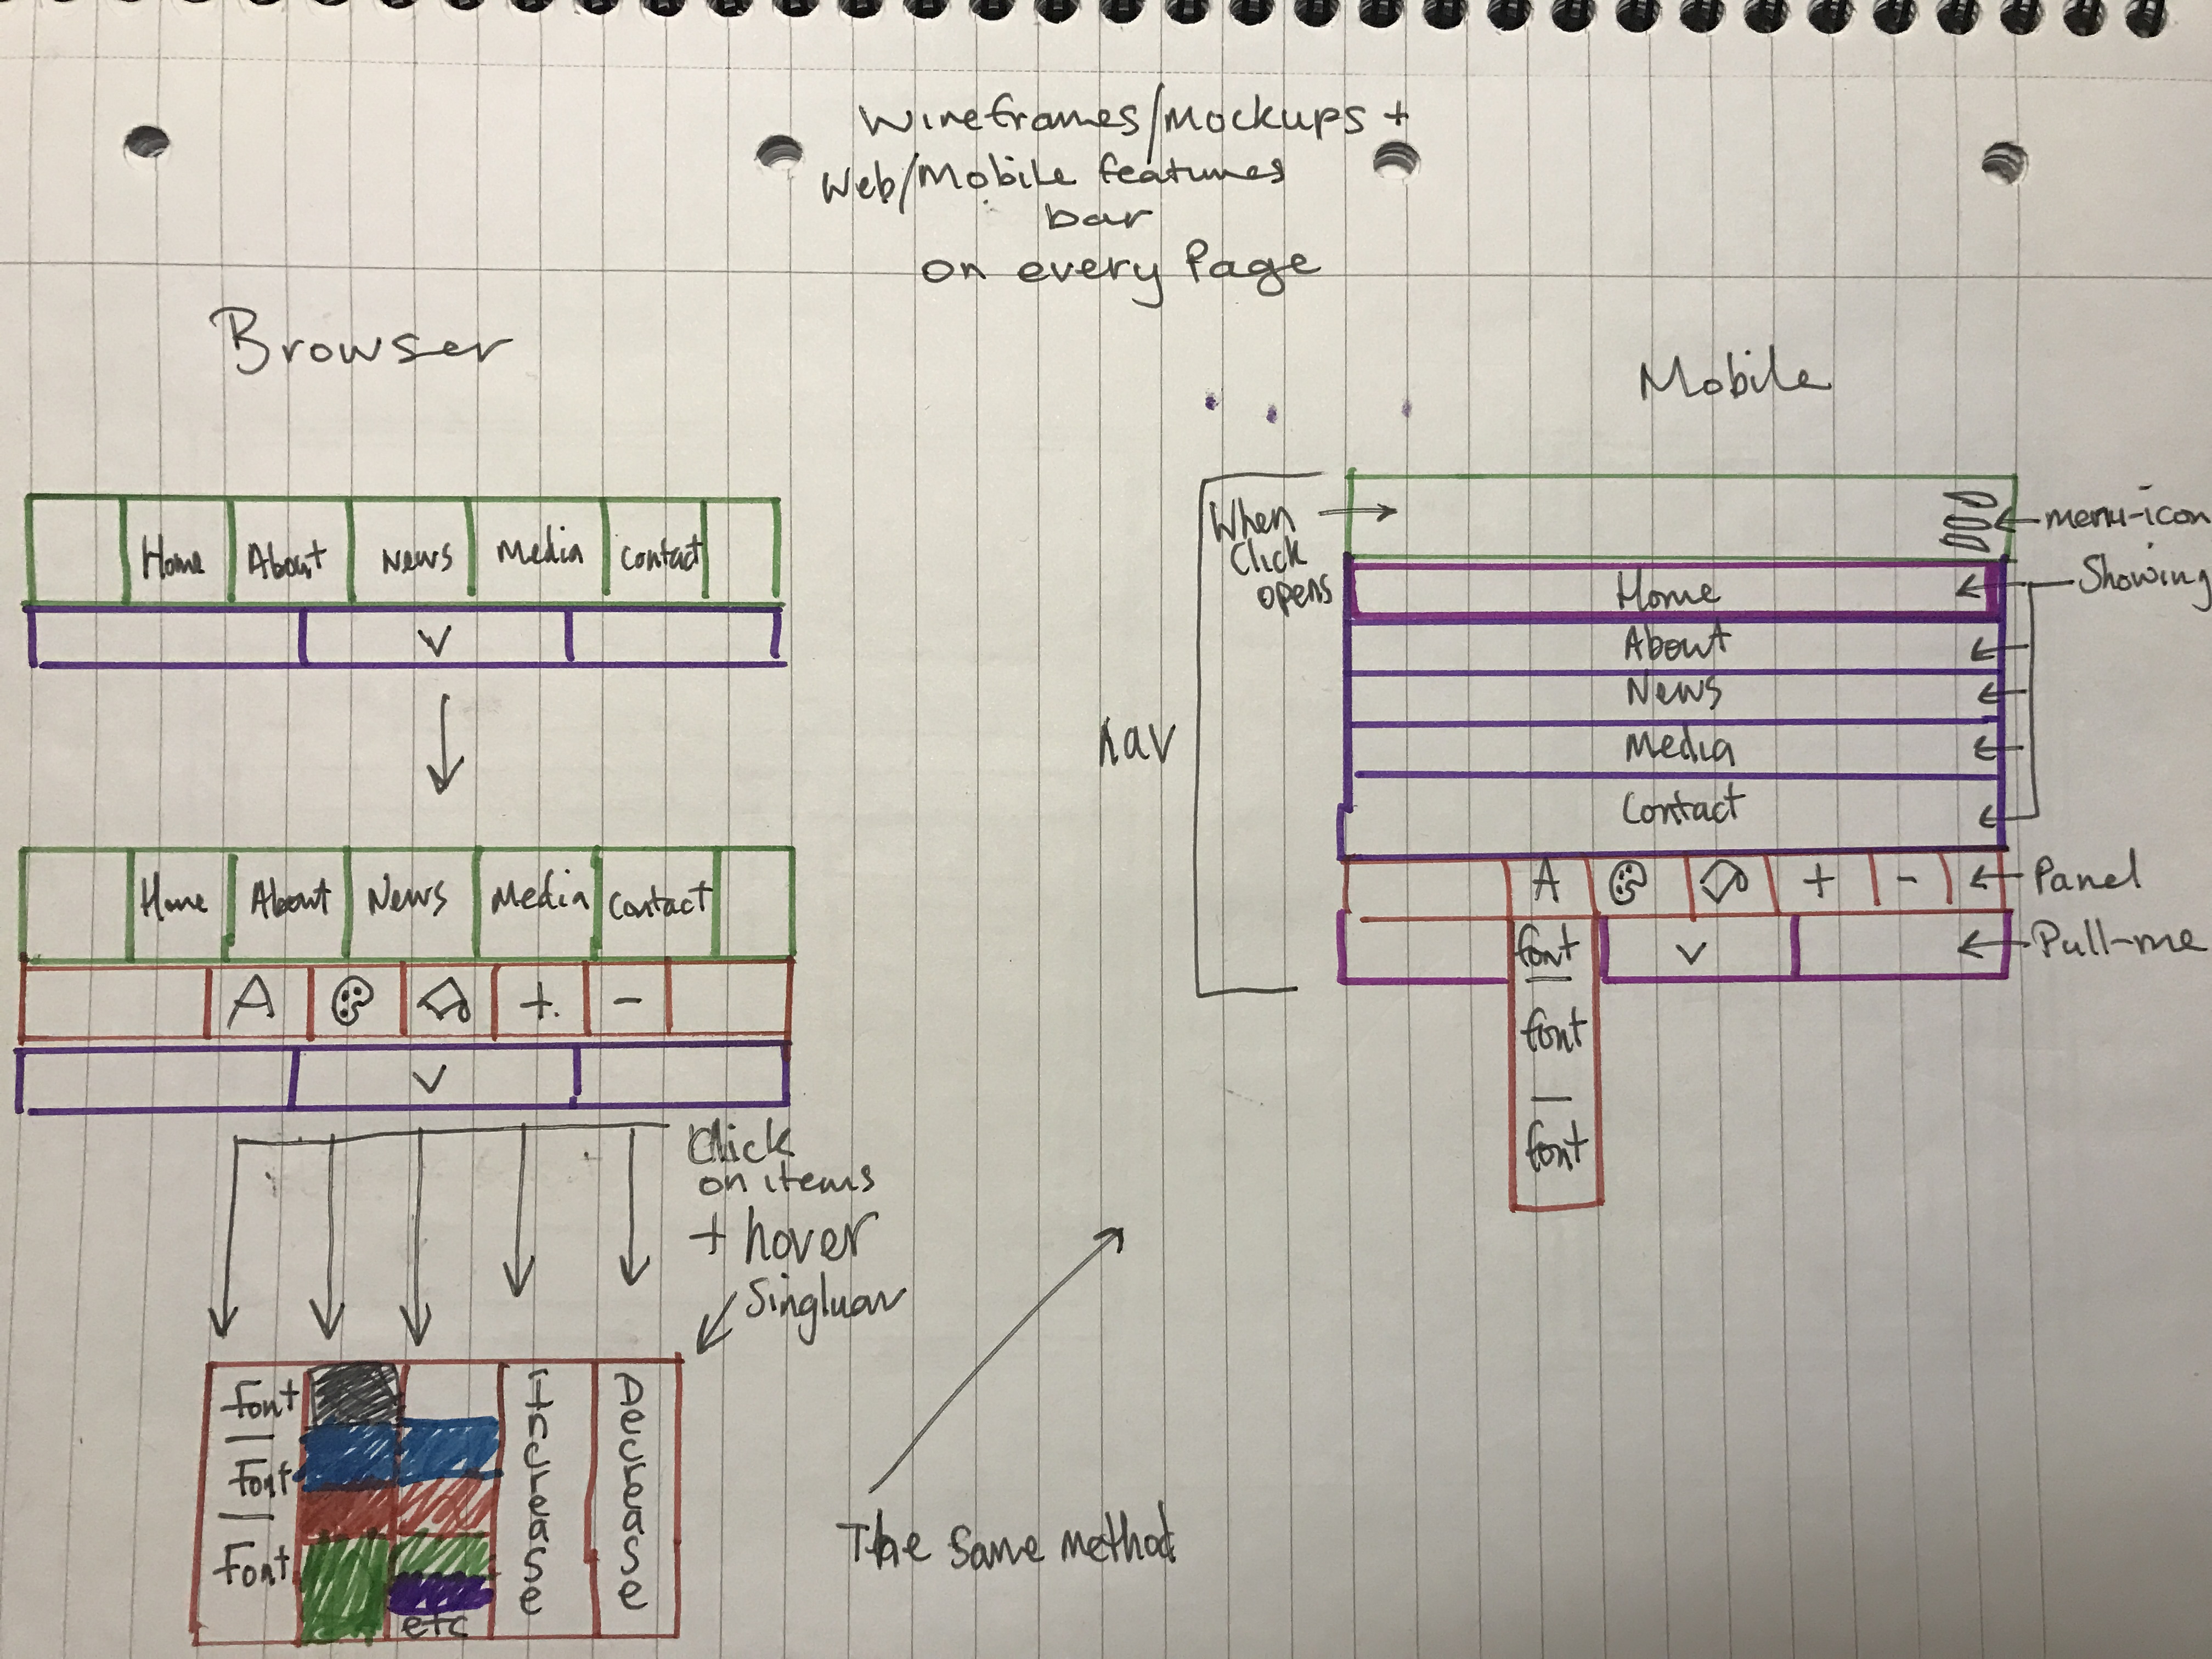 Wireframes/Mockups +
Web/Mobile features
bar
on every Page
Browser
Home About News Media Contact
V
Home About News Media Contact
A + -
V
Click
on items
+ hover
Singluar
font
Font
Font
etc
Increase
Decrease
The Same method
Mobile
When
Click
opens
nav
menu-icon
Showing
Home
About
News
Media
Contact
A + -
Panel
font
V
Pull-me
font
font